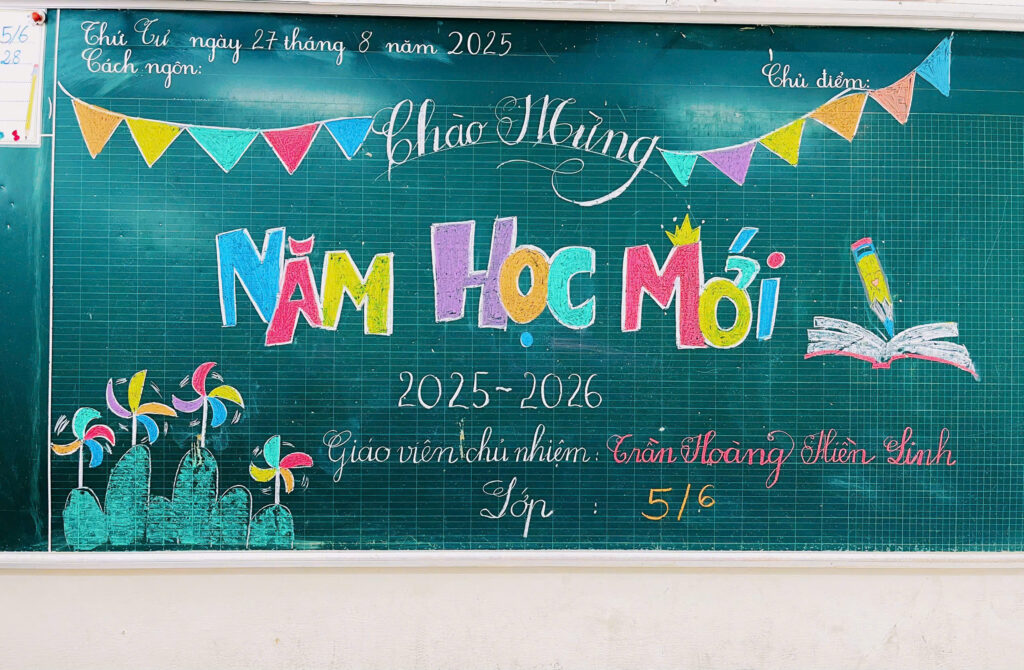 5/6
28
Thứ Tư ngày 27 tháng 8 năm 2025
Cách ngôn:
Chủ điểm:
Chào Mừng
NĂM HỌC MỚI
2025~2026
Giáo viên chủ nhiệm: Trần Hoàng Hiền Linh
Lớp : 5/6